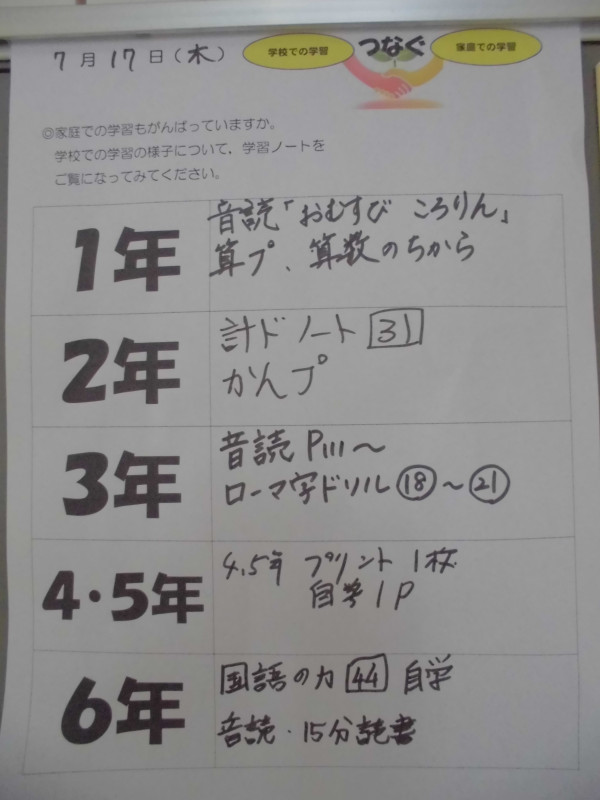 7月17日(木)
学校での学習
つなぐ
家庭での学習
◎家庭での学習もがんばっていますか。
学校での学習の様子について、学習ノートを
ご覧になってみてください。
1年
音読「おむすび ころりん」
算プ、算数のちから
2年
計ドノート 31
かんプ
3年
音読 P111~
ローマ字ドリル⑱~㉑
4・5年
4.5年 プリント 1枚
自学1P
6年
国語の力 44 自学
音読・15分読書